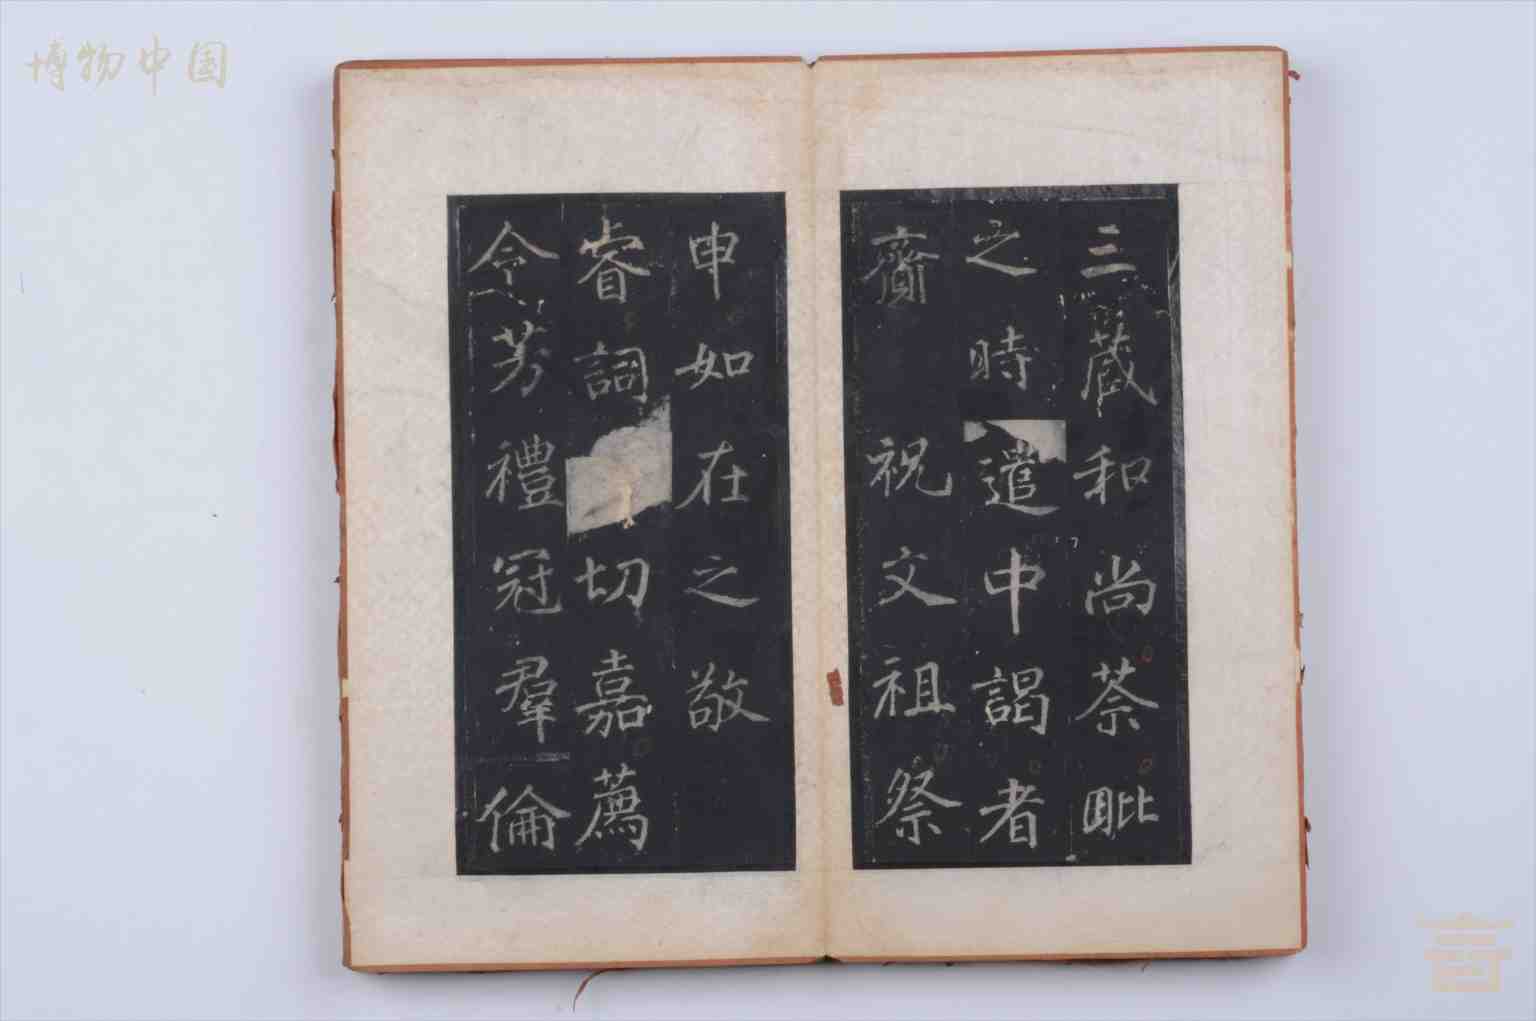 博物中国
三藏和尚荼毗
之時遣中謁者
齎祝文祖祭
申如在之敬
睿詞切嘉薦
令芳禮冠羣倫